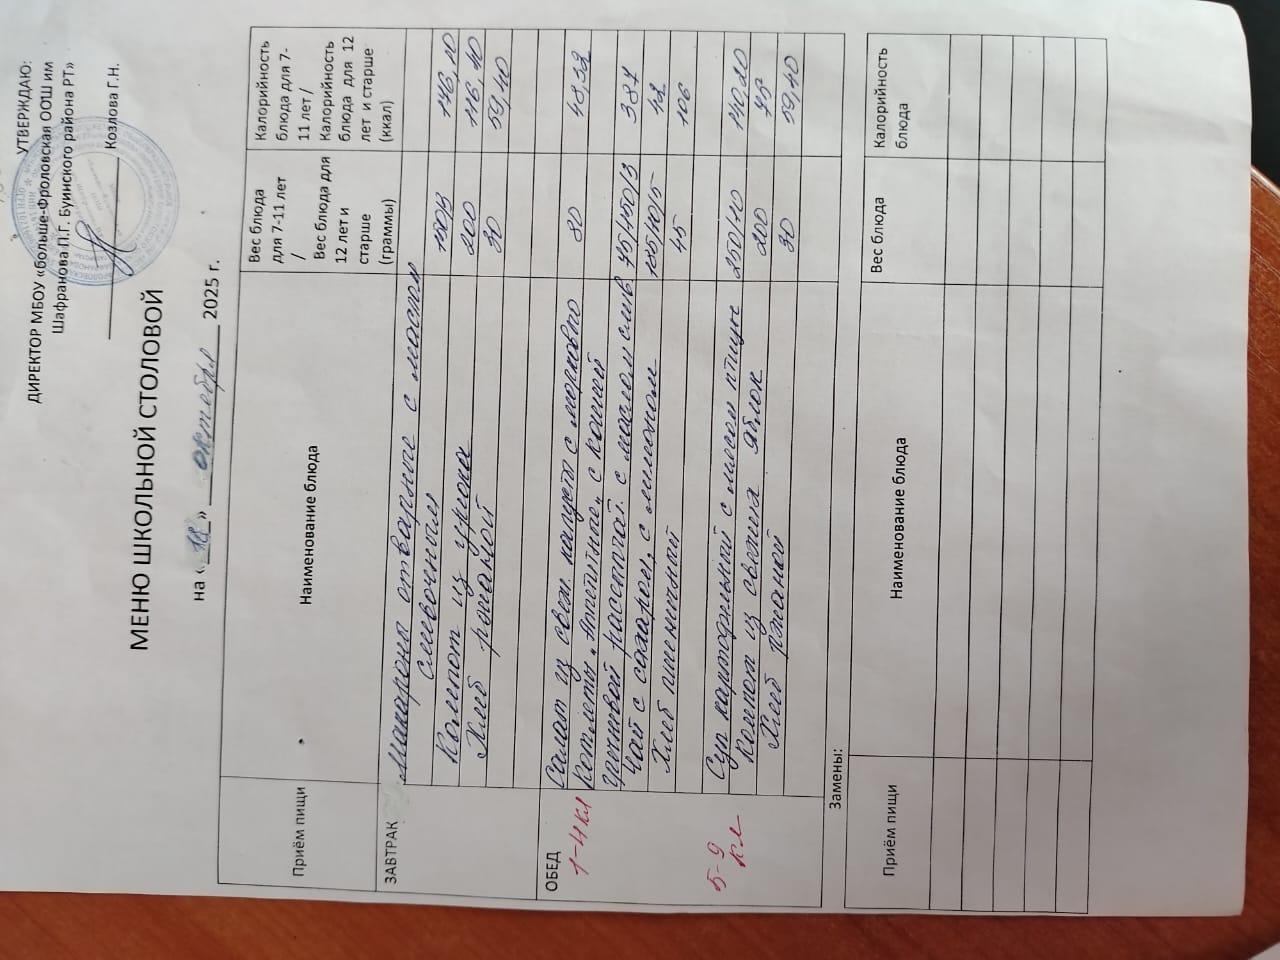 УТВЕРЖДАЮ:
ДИРЕКТОР МБОУ «Больше-Фроловская ООШ им
Шафранова П.Г. Буинского района РТ»
Козлова Г.Н.
МЕНЮ ШКОЛЬНОЙ СТОЛОВОЙ
на « » октября 2025 г.
Приём пищи Наименование блюда Вес блюда для 7-11 лет / Вес блюда для 12 лет и старше (граммы) Калорийность блюда для 7-11 лет / Калорийность блюда для 12 лет и старше (ккал)
ЗАВТРАК Макароны отварные с маслом
сливочным 150/3 146,10
Компот из изюма 200 116,40
Хлеб ржаной 30 59,40
ОБЕД
1-4 кл
Салат из свеж капуст с морковью 80 48,32
Котлеты "Аппетитные" с кашей
гречневой рассыпчат. с маслом слив 75/150/3 387
Чай с сахаром, с лимоном 185/10/5 42
Хлеб пшеничный 45 106
5-9
кл
Суп картофельный с мясом птицы 250/10 140,20
Компот из свежих яблок 200
Хлеб ржаной 30 59,40
Замены:
Приём пищи Наименование блюда Вес блюда Калорийность блюда